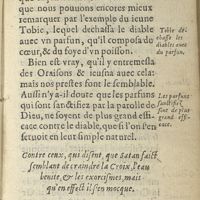 que nous pouuons encores mieux
remarquer par l'exemple du ieune
Tobie, lequel dechassa le diable
auec vn parfun, qu'il composa de
cœur, & du foye d'vn poisson.
Tobie de-
chasse le
diable auec
du parfun.
Bien est vray, qu'il y entremesla
des Oraisons & ieusna auec cela:
mais nos prestres font le semblable.
Aussi n'y a-il doute que les parfuns
sanctifiez par la parolle de
Dieu, ne soyent de plus grand effi-
cace contre le diable, que si l'on s'en
seruoit en leur simple naturel.
Les parfuns
sanctifiez
sont de plus
grand effi-
cace.
Contre ceux, qui disent, que Satan faict
semblant de craindre la Croix, l'eau
benite, & les exorcismes, mais
qu'en effect il s'en mocque.